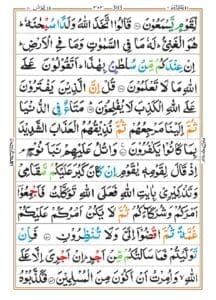 لِّقَوْمٍ يَّسْمَعُوْنَ ۞ قَالُوا اتَّخَذَ اللّٰهُ وَلَدًا سُبْحٰنَهٗ ؕ
هُوَ الْغَنِىُّ ؕ لَهٗ مَا فِى السَّمٰوٰتِ وَمَا فِى الْاَرْضِ ؕ
اِنْ عِنْدَكُمْ مِّنْ سُلْطٰنٍۢ بِهٰذَا ؕ اَتَقُوْلُوْنَ عَلَى
اللّٰهِ مَا لَا تَعْلَمُوْنَ ۞ قُلْ اِنَّ الَّذِيْنَ يَفْتَرُوْنَ
عَلَى اللّٰهِ الْكَذِبَ لَا يُفْلِحُوْنَ ۞ مَتَاعٌ فِى الدُّنْيَا
ثُمَّ اِلَيْنَا مَرْجِعُهُمْ ثُمَّ نُذِيْقُهُمُ الْعَذَابَ الشَّدِيْدَ
بِمَا كَانُوْا يَكْفُرُوْنَ ۞ وَاتْلُ عَلَيْهِمْ نَبَاَ نُوْحٍ ۘ
اِذْ قَالَ لِقَوْمِهٖ يٰقَوْمِ اِنْ كَانَ كَبُرَ عَلَيْكُمْ مَّقَامِىْ
وَتَذْكِيْرِىْ بِاٰيٰتِ اللّٰهِ فَعَلَى اللّٰهِ تَوَكَّلْتُ فَاَجْمِعُوْۤا
اَمْرَكُمْ وَشُرَكَآءَكُمْ ثُمَّ لَا يَكُنْ اَمْرُكُمْ عَلَيْكُمْ
غُمَّةً ثُمَّ اقْضُوْۤا اِلَىَّ وَلَا تُنْظِرُوْنِ ۞ فَاِنْ
تَوَلَّيْتُمْ فَمَا سَاَلْتُكُمْ مِّنْ اَجْرٍ ؕ اِنْ اَجْرِىَ اِلَّا عَلَى
اللّٰهِ ۙ وَاُمِرْتُ اَنْ اَكُوْنَ مِنَ الْمُسْلِمِيْنَ ۞ فَكَذَّبُوْهُ